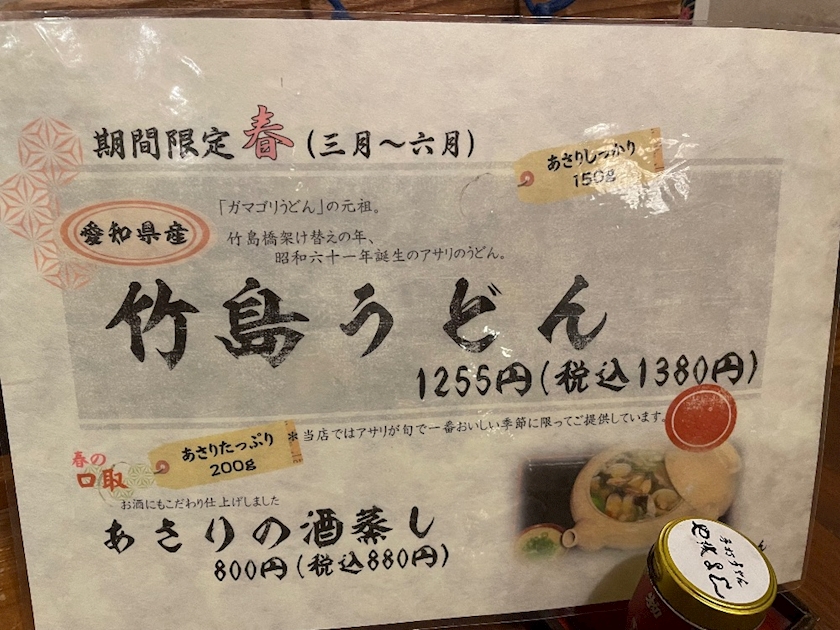 期間限定 春 (三月～六月)
あさりしっかり
150g
愛知県産
「ガマゴリうどん」の元祖。
竹島橋架け替えの年、
昭和六十一年誕生のアサリのうどん。
竹島うどん
1255円(税込1380円)
＊当店ではアサリが旬で一番おいしい季節に限ってご提供しています。
春の
口取
あさりたっぷり
200g
お酒にもこだわり仕上げしました
あさりの酒蒸し
800円(税込880円)